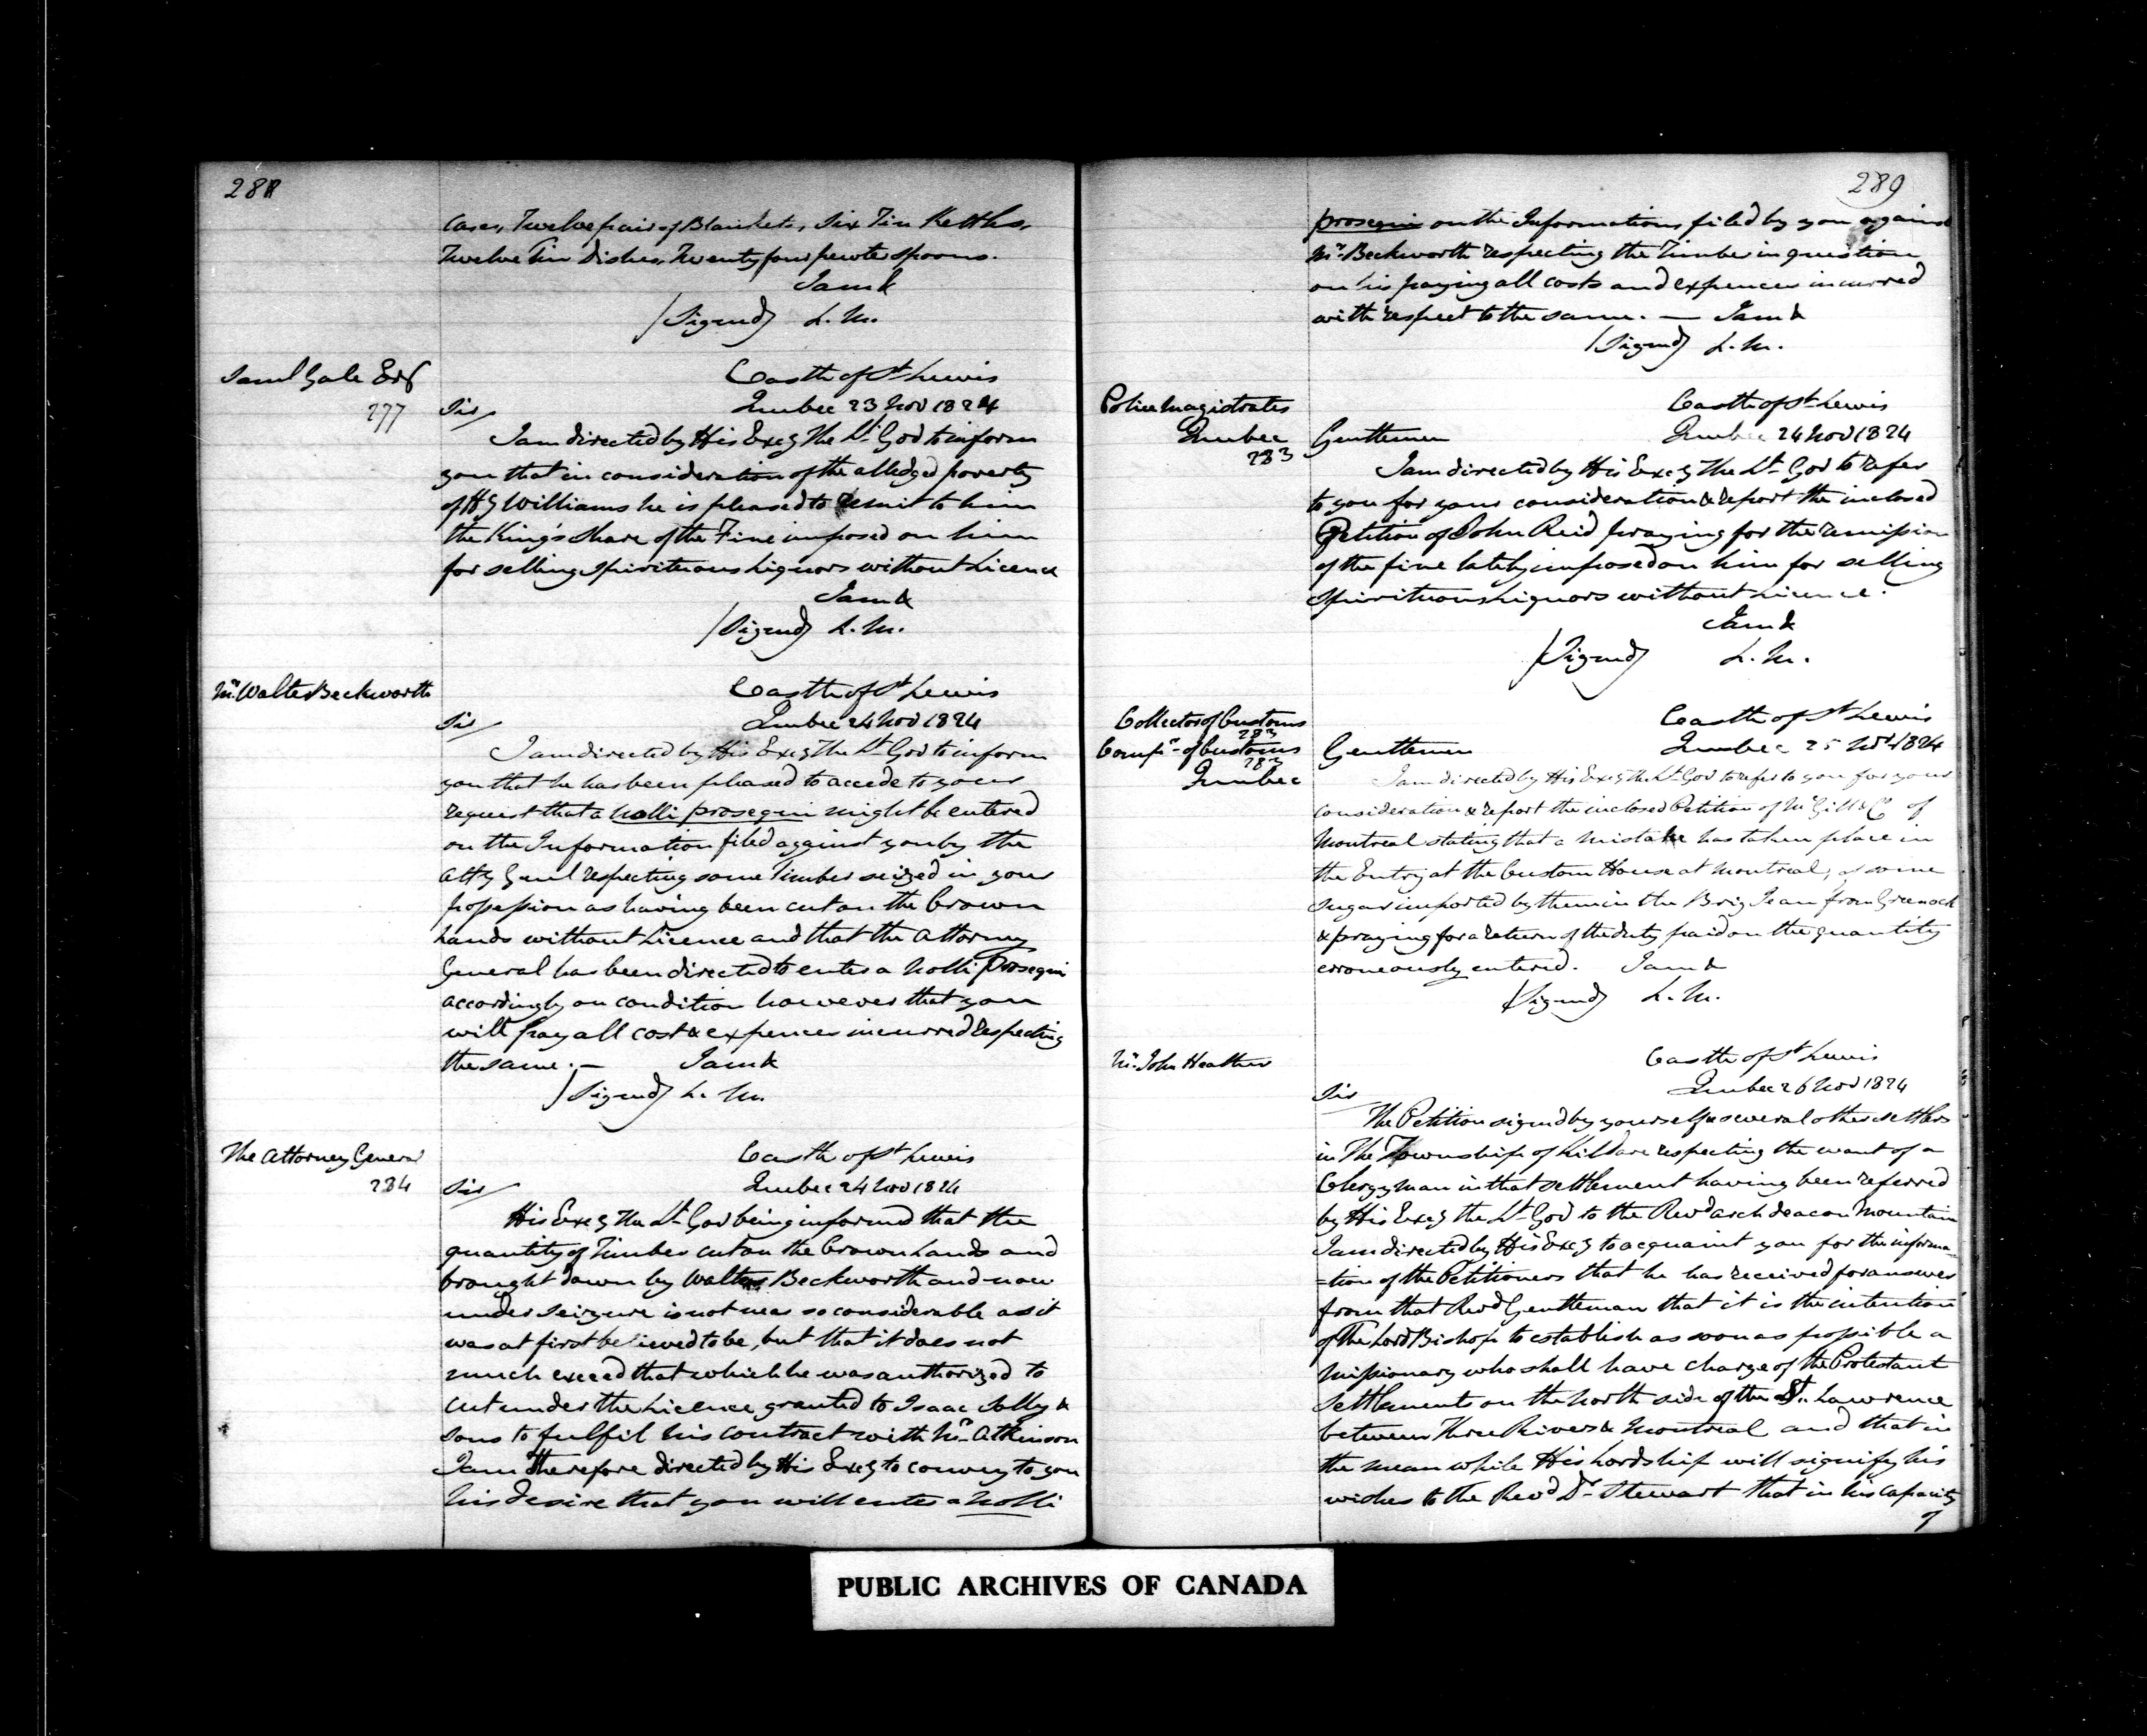 288
Cases, Twelve pair of Blankets, Six Tin Kettles,
Twelve Tin Dishes, Twenty four pewter spoons.
I am &
(Signed) L. M.
Saml Gale Esqr
277
Castle of St Lewis
Quebec 23 Nov 1824
Sir/
I am directed by His Excy The Lt Govr to inform
you that in consideration of the alledged poverty
of H G Williams he is pleased to remit to him
the King's Share of the Fine imposed on him
for selling Spirituous Liquors without Licence
I am &
(Signed) L. M.
Mr Walter Beckworth
Castle of St Lewis
Quebec 24 Nov 1824
Sir/
I am directed by His Excy The Lt Govr to inform
you that he has been pleased to accede to your
request that a Nolli prosequi might be entered
on the Information filed against you by the
Atty Genl respecting some Timber seized in your
possession as having been cut on the Crown
Lands without Licence and that the Attorney
General has been directed to enter a Nolli Prosequi
accordingly on condition however that you
will pay all cost & expences incurred respecting
the same. — I am &
(Signed) L. M.
The Attorney General
284
Castle of St Lewis
Quebec 24 Nov 1824
Sir/
His Excy The Lt Govr being informed that the
quantity of Timber cut on the Crown Lands and
brought down by Walter Beckworth and now
under seizure is not near so considerable as it
was at first believed to be, but that it does not
much exceed that which he was authorized to
cut under the Licence granted to Isaac Solly &
Sons to fulfil his contract with Mr Atkinson
I am Therefore directed by His Excy to convey to you
his desire that you will enter a Nolli
289
prosequi on the Informations filed by you against
Mr Beckworth respecting the Timber in question
on his paying all costs and expences incurred
with respect to the same. — I am &
(Signed) L. M.
Police Magistrates
Quebec
283
Castle of St Lewis
Quebec 24 Nov 1824
Gentlemen
I am directed by His Excy The Lt Govr to refer
to you for your consideration & report the inclosed
Petition of John Reid praying for the remission
of the fine lately imposed on him for selling
Spirituous Liquors without Licence.
I am &
(Signed) L. M.
Collector of Customs
283
Compr of Customs
283
Quebec
Castle of St Lewis
Quebec 25 Novr 1824
Gentlemen
I am directed by His Excy The Lt Govr to refer to you for your
consideration & report the inclosed Petition of McGill & Co of
Montreal stating that a mistake has taken place in
the Entry at the Custom House at Montreal, of some
Sugar imported by them in the Brig Jean from Greenock
& praying for a return of the duty paid on the quantity
erroneously entered. I am &
(Signed) L. M.
Mr John Heather
Castle of St Lewis
Quebec 26 Nov 1824
Sir
The Petition signed by yourself & several other settlers
in The Township of Kildare respecting the want of a
Clergyman in that settlement having been referred
by His Excy the Lt Govr to the Revd Archdeacon Mountain
I am directed by His Excy to acquaint you for the informa-
=tion of the Petitioners that he has received for answer
from that Revd Gentleman that it is the intention
of The Lord Bishop to establish as soon as possible a
Missionary who shall have charge of the Protestant
Settlements on the North side of the St. Lawrence
between Three Rivers & Montreal and that in
the mean while His Lordship will signify his
wishes to the Revd Dr Stewart that in his capacity
PUBLIC ARCHIVES OF CANADA